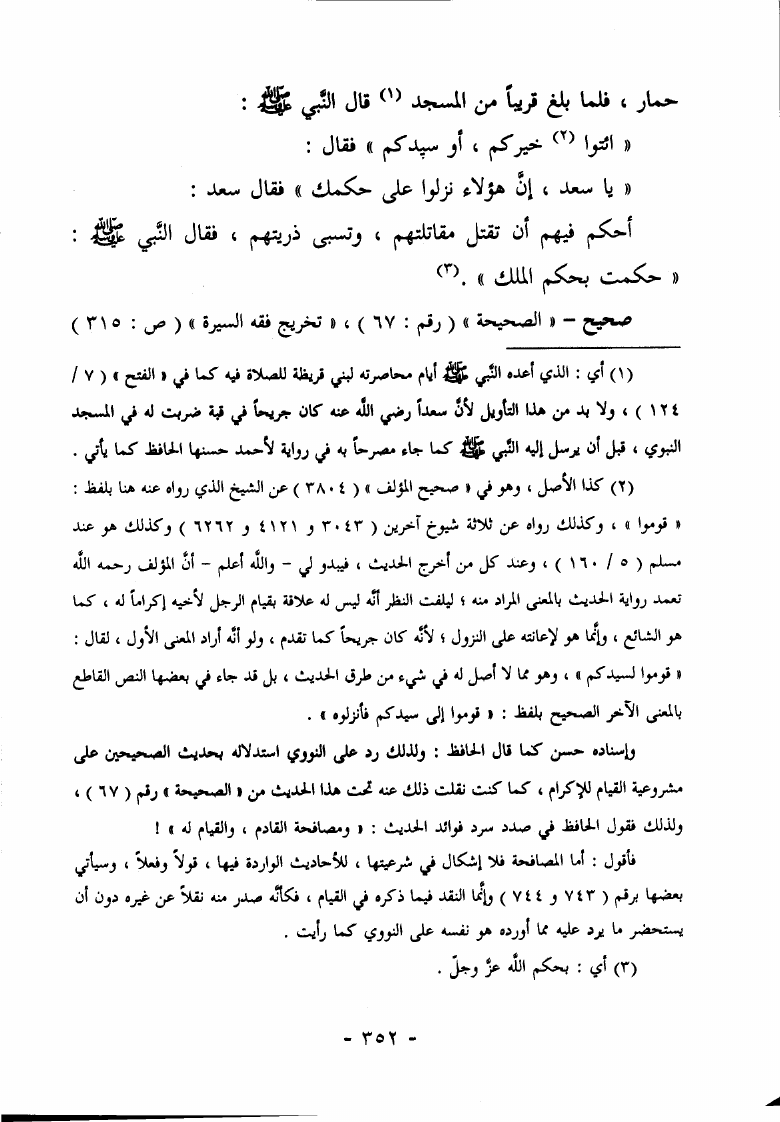 حمار ، فلما بلغ قريباً من المسجد (١) قال النَّبي ﷺ :
« ائتوا (٢) خيركم ، أو سيدكم » فقال :
« يا سعد ، إنَّ هؤلاء نزلوا على حكمك » فقال سعد :
أحكم فيهم أن تقتل مقاتلتهم ، وتسبى ذريتهم ، فقال النَّبي ﷺ :
« حكمت بحكم الملك » .(٣)
صحيح – « الصحيحة » ( رقم : ٦٧ ) ، « تخريج فقه السيرة » ( ص : ٣١٥ )
(١) أي : الذي أعده النَّبي ﷺ أيام محاصرته لبني قريظة للصلاة فيه كما في « الفتح » ( ٧ /
١٢٤ ) ، ولا بد من هذا التأويل لأنَّ سعداً رضي اللَّه عنه كان جريحاً في قبة ضربت له في المسجد
النبوي ، قبل أن يرسل إليه النَّبي ﷺ كما جاء مصرحاً به في رواية لأحمد حسنها الحافظ كما يأتي .
(٢) كذا الأصل ، وهو في « صحيح المؤلف » ( ٣٨٠٤ ) عن الشيخ الذي رواه عنه هنا بلفظ :
« قوموا » ، وكذلك رواه عن ثلاثة شيوخ آخرين ( ٣٠٤٣ و ٤١٢١ و ٦٢٦٢ ) وكذلك هو عند
مسلم ( ٥ / ١٦٠ ) ، وعند كل من أخرج الحديث ، فيبدو لي – واللَّه أعلم – أنَّ المؤلف رحمه اللَّه
تعمد رواية الحديث بالمعنى المراد منه ؛ ليلفت النظر أنَّه ليس له علاقة بقيام الرجل لأخيه إكراماً له ، كما
هو الشائع ، وإنَّما هو لإعانته على النزول ؛ لأنَّه كان جريحاً كما تقدم ، ولو أنَّه أراد المعنى الأول ، لقال :
« قوموا لسيدكم » ، وهو مما لا أصل له في شيء من طرق الحديث ، بل قد جاء في بعضها النص القاطع
بالمعنى الآخر الصحيح بلفظ : « قوموا إلى سيدكم فأنزلوه » .
وإسناده حسن كما قال الحافظ : ولذلك رد على النووي استدلاله بحديث الصحيحين على
مشروعية القيام للإكرام ، كما كنت نقلت ذلك عنه تحت هذا الحديث من « الصحيحة » رقم ( ٦٧ ) ،
ولذلك فقول الحافظ في صدد سرد فوائد الحديث : « ومصافحة القادم ، والقيام له » !
فأقول : أما المصافحة فلا إشكال في شرعيتها ، للأحاديث الواردة فيها ، قولاً وفعلاً ، وسيأتي
بعضها برقم ( ٧٤٣ و ٧٤٤ ) وإنَّما النقد فيما ذكره في القيام ، فكأنَّه صدر منه نقلاً عن غيره دون أن
يستحضر ما يرد عليه مما أورده هو نفسه على النووي كما رأيت .
(٣) أي : بحكم اللَّه عزَّ وجلّ .
- ٣٥٢ -